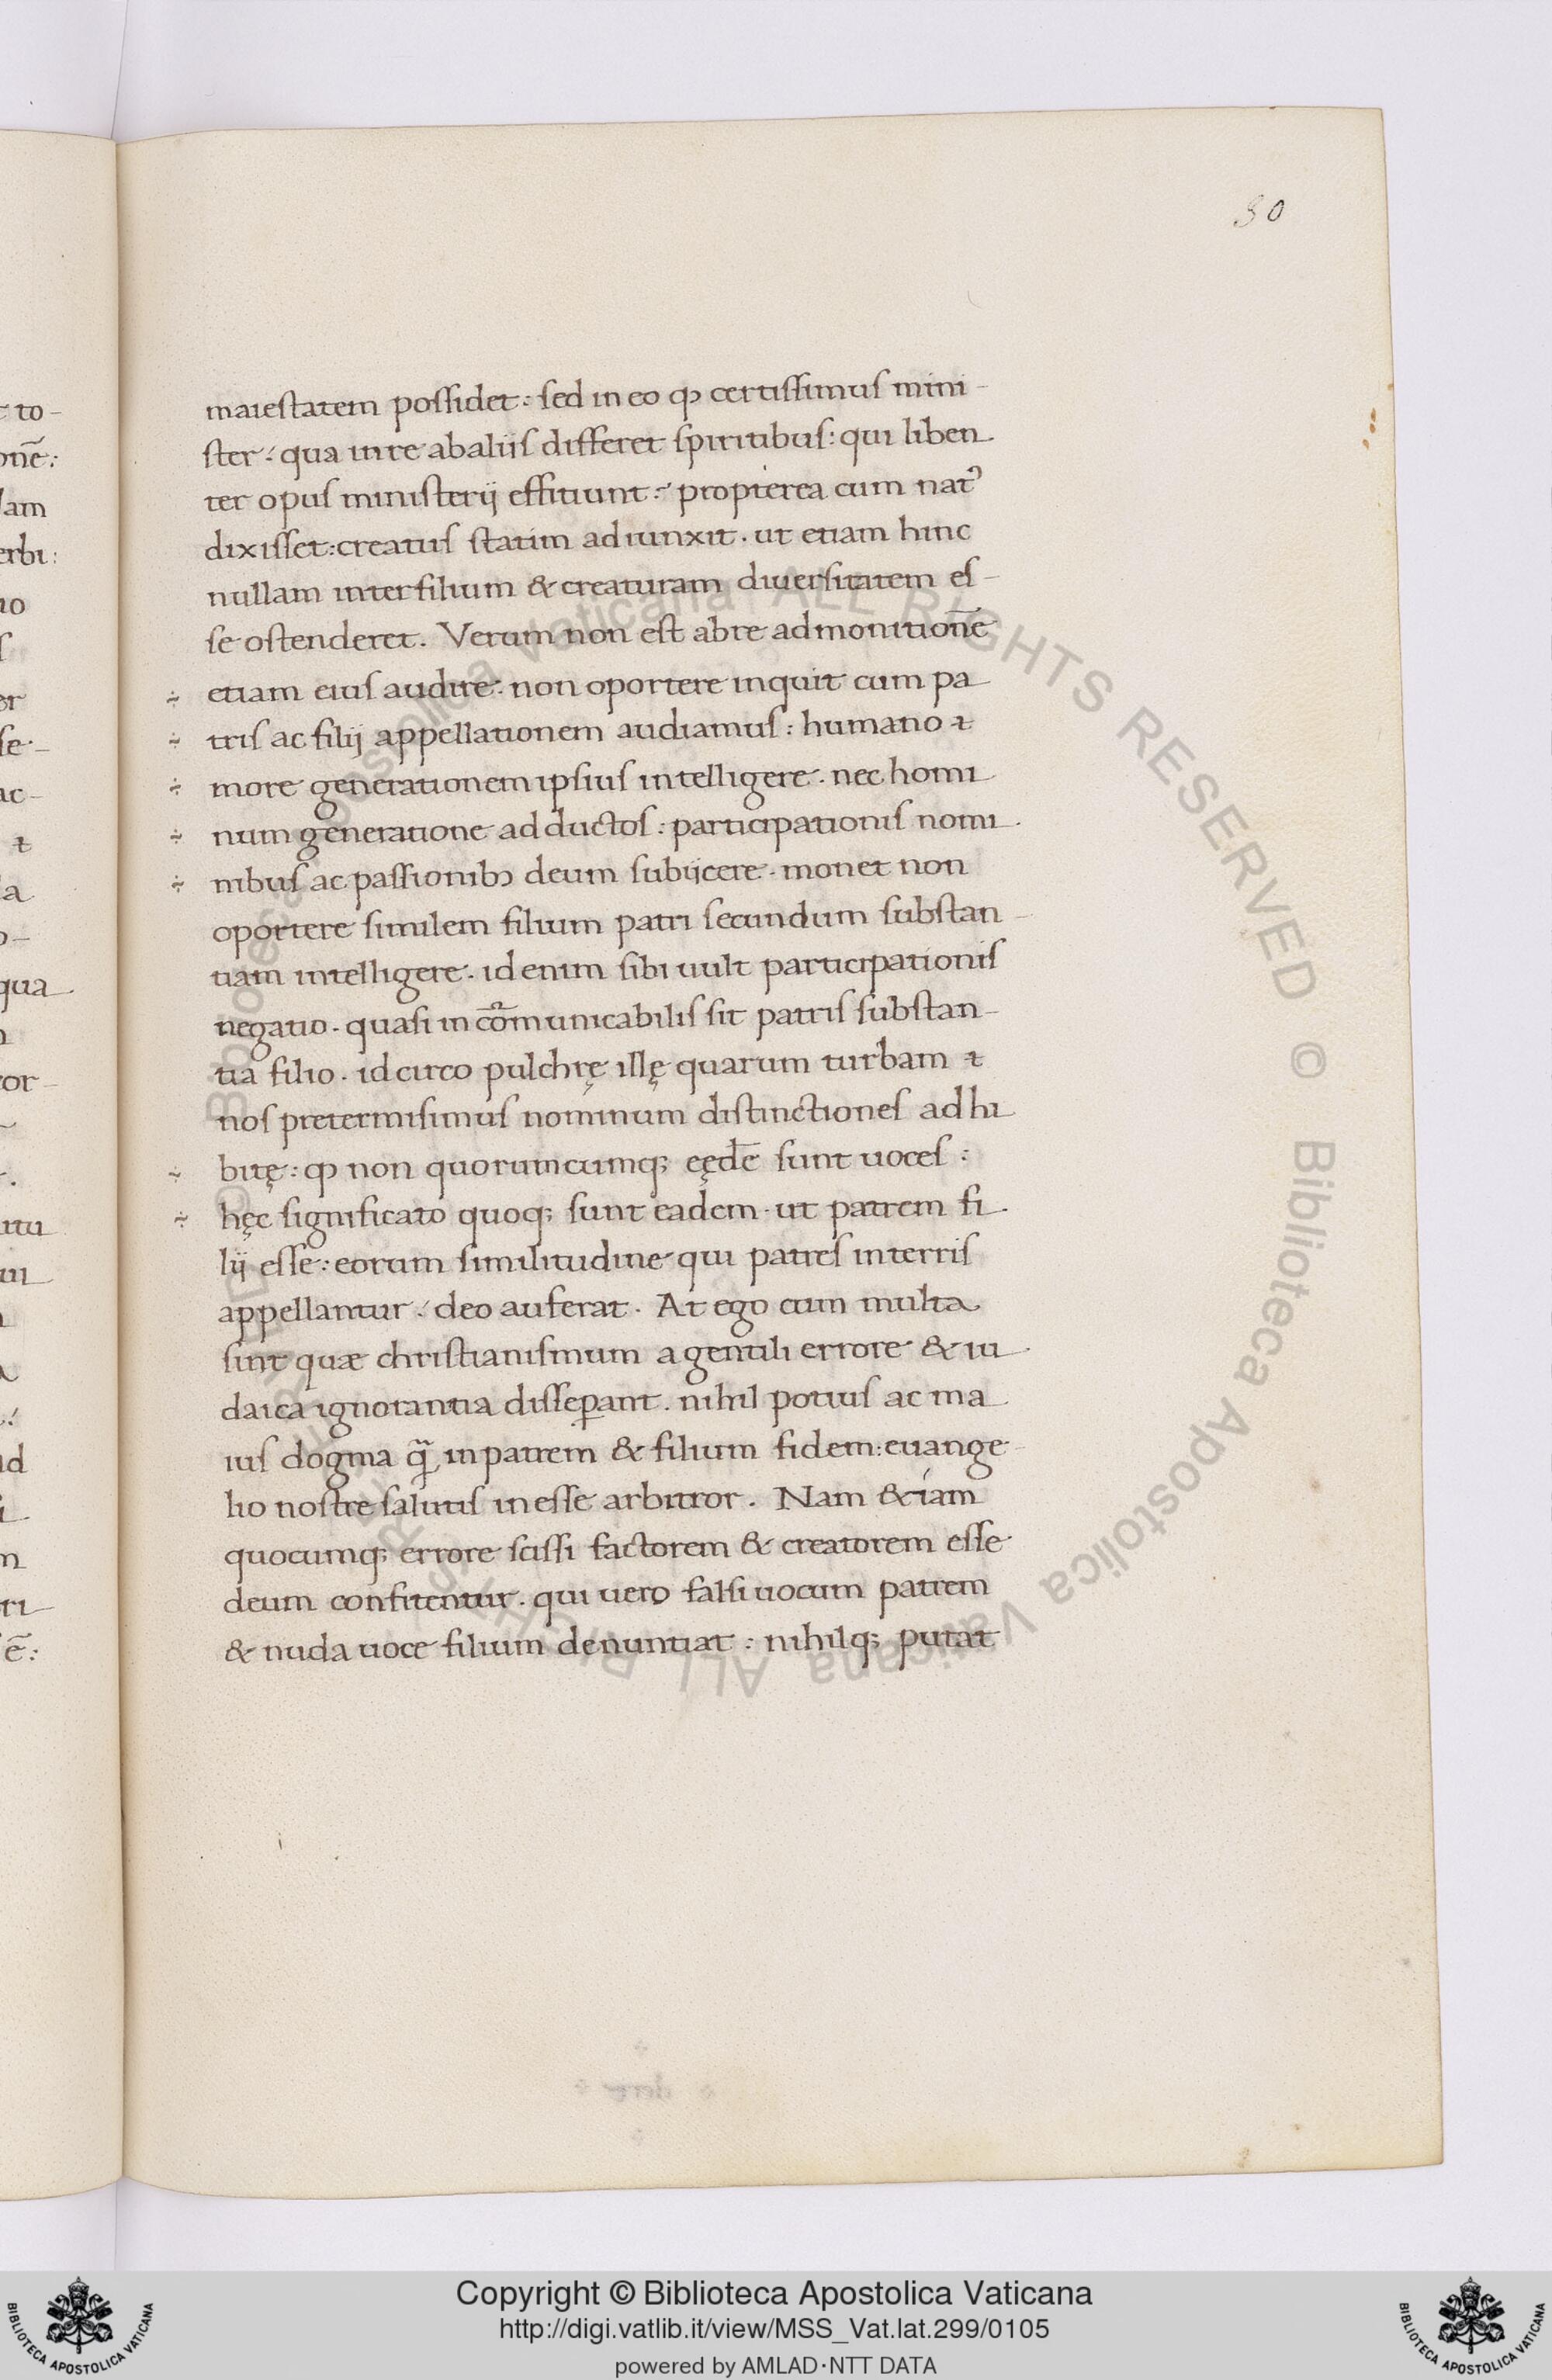 30
maiestatem possidet: sed in eo ꝙ certissimus mini-
ster: qua in re ab aliis differet spiritibus: qui liben
ter opus ministerij effitiunt: propterea cum natꝰ
dixisset: creatus statim adiunxit. ut etiam hinc
nullam inter filium & creaturam diuersitatem es-
se ostenderet. Verum non est ab re admonitionē
÷ etiam eius audire. non oportere inquit cum pa
÷ tris ac filij appellationem audiamus: humano ⁊
÷ more generationem ipsius intelligere. nec homi
÷ num generatione adductos: participationis nomi
÷ nibus ac passionibꝫ deum subijcere. monet non
oportere similem filium patri secundum substan-
tiam intelligere. id enim sibi uult participationis
negatio. quasi incōmunicabilis sit patris substan-
tia filio. id circo pulchrę illę quarum turbam ⁊
nos pretermisimus nominum distinctiones adhi
÷ bitę: ꝙ non quorumcumq; eędē sunt uoces:
÷ hęc significato quoq; sunt eadem. ut patrem fi
lij esse: eorum similitudine qui patres in terris
appellantur: deo auferat. At ego cum multa
sint quæ christianismum a gentili errore & iu
daica ignorantia disseꝑant. nihil potius ac ma
ius dogma q̄ in patrem & filium fidem: euange-
lio nostre salutis inesse arbitror. Nam & iam
quocumq; errore scissi factorem & creatorem esse
deum confitentur. qui uero falsi uocum patrem
& nuda uoce filium denuntiat: nihilq; putat
to-
onē:
lam
erbi:
no
er
se-
ac-
⁊
qua
or-
itu
id
ē:
© Biblioteca Apostolica Vaticana ALL RIGHTS RESERVED © Biblioteca Apostolica Vaticana ALL RIGHTS RESERVED
Copyright © Biblioteca Apostolica Vaticana
http://digi.vatlib.it/view/MSS_Vat.lat.299/0105
powered by AMLAD·NTT DATA
BIBLIOTECA APOSTOLICA VATICANA
BIBLIOTECA APOSTOLICA VATICANA